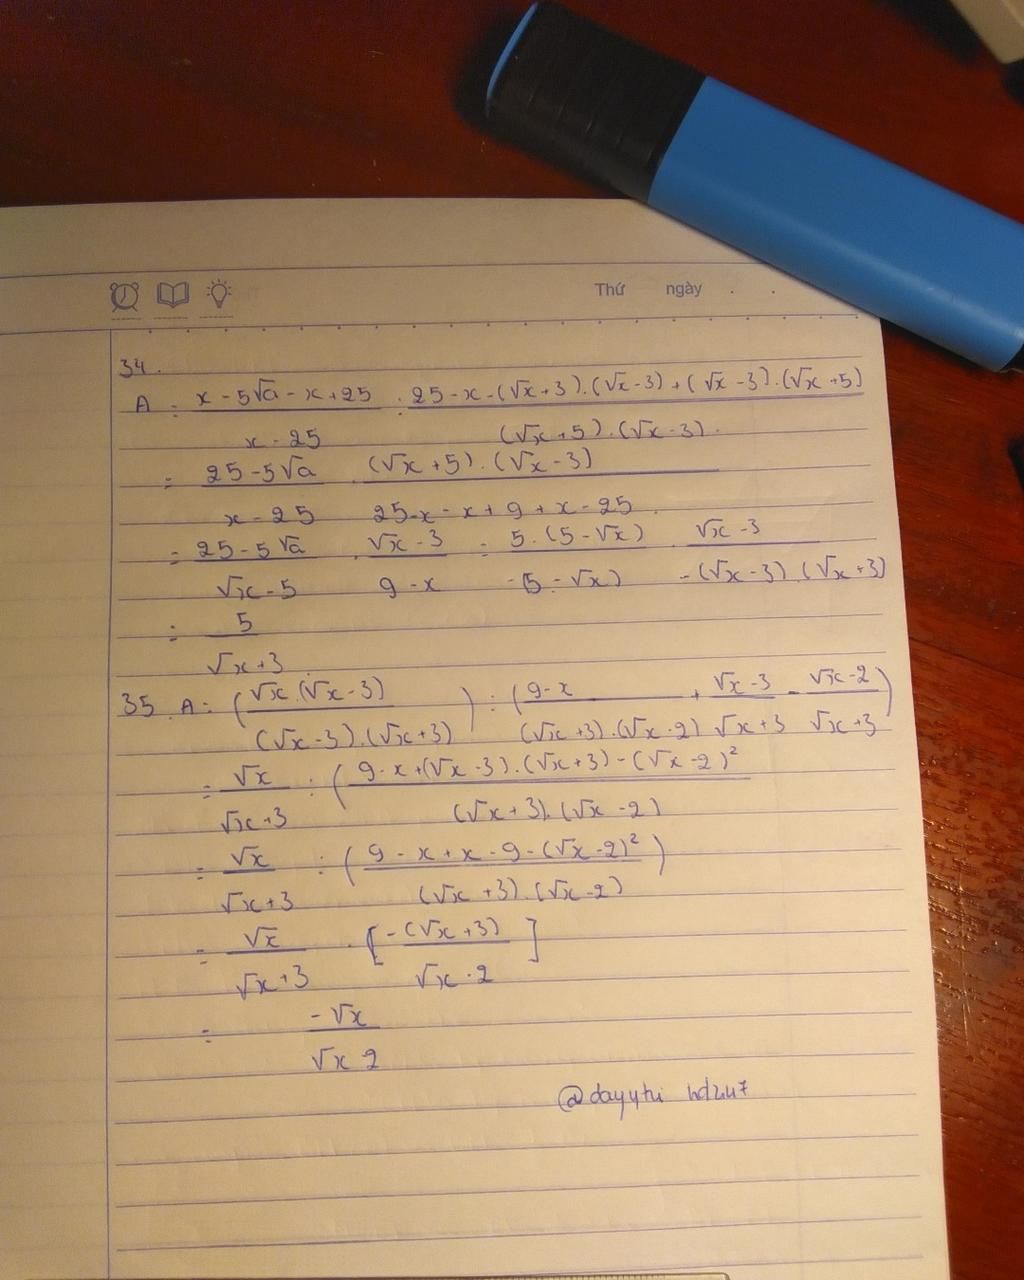 Thứ ngày . .
34.
A = (x - 5√a - x + 25)/(x - 25) : (25 - x - (√x + 3).(√x - 3) + (√x - 3).(√x + 5))/((√x + 5).(√x - 3))
= (25 - 5√a)/(x - 25) . ((√x + 5).(√x - 3))/(25 - x - x + 9 + x - 25)
= (25 - 5√a)/(√x - 5) . (√x - 3)/(9 - x) = (5.(5 - √x))/(-(5 - √x)) . (√x - 3)/(-(√x - 3).(√x + 3))
= 5/(√x + 3)
35. A = ((√x.(√x - 3))/((√x - 3).(√x + 3))) : ((9 - x)/((√x + 3).(√x - 2)) + (√x - 3)/(√x + 3) - (√x - 2)/(√x + 3))
= √x/(√x + 3) : ((9 - x + (√x - 3).(√x + 3) - (√x - 2)²)/((√x + 3).(√x - 2))
= √x/(√x + 3) : ((9 - x + x - 9 - (√x - 2)²)/((√x + 3).(√x - 2)))
= √x/(√x + 3) . [-(√x + 3)/(√x - 2)]
= -√x/(√x 2)